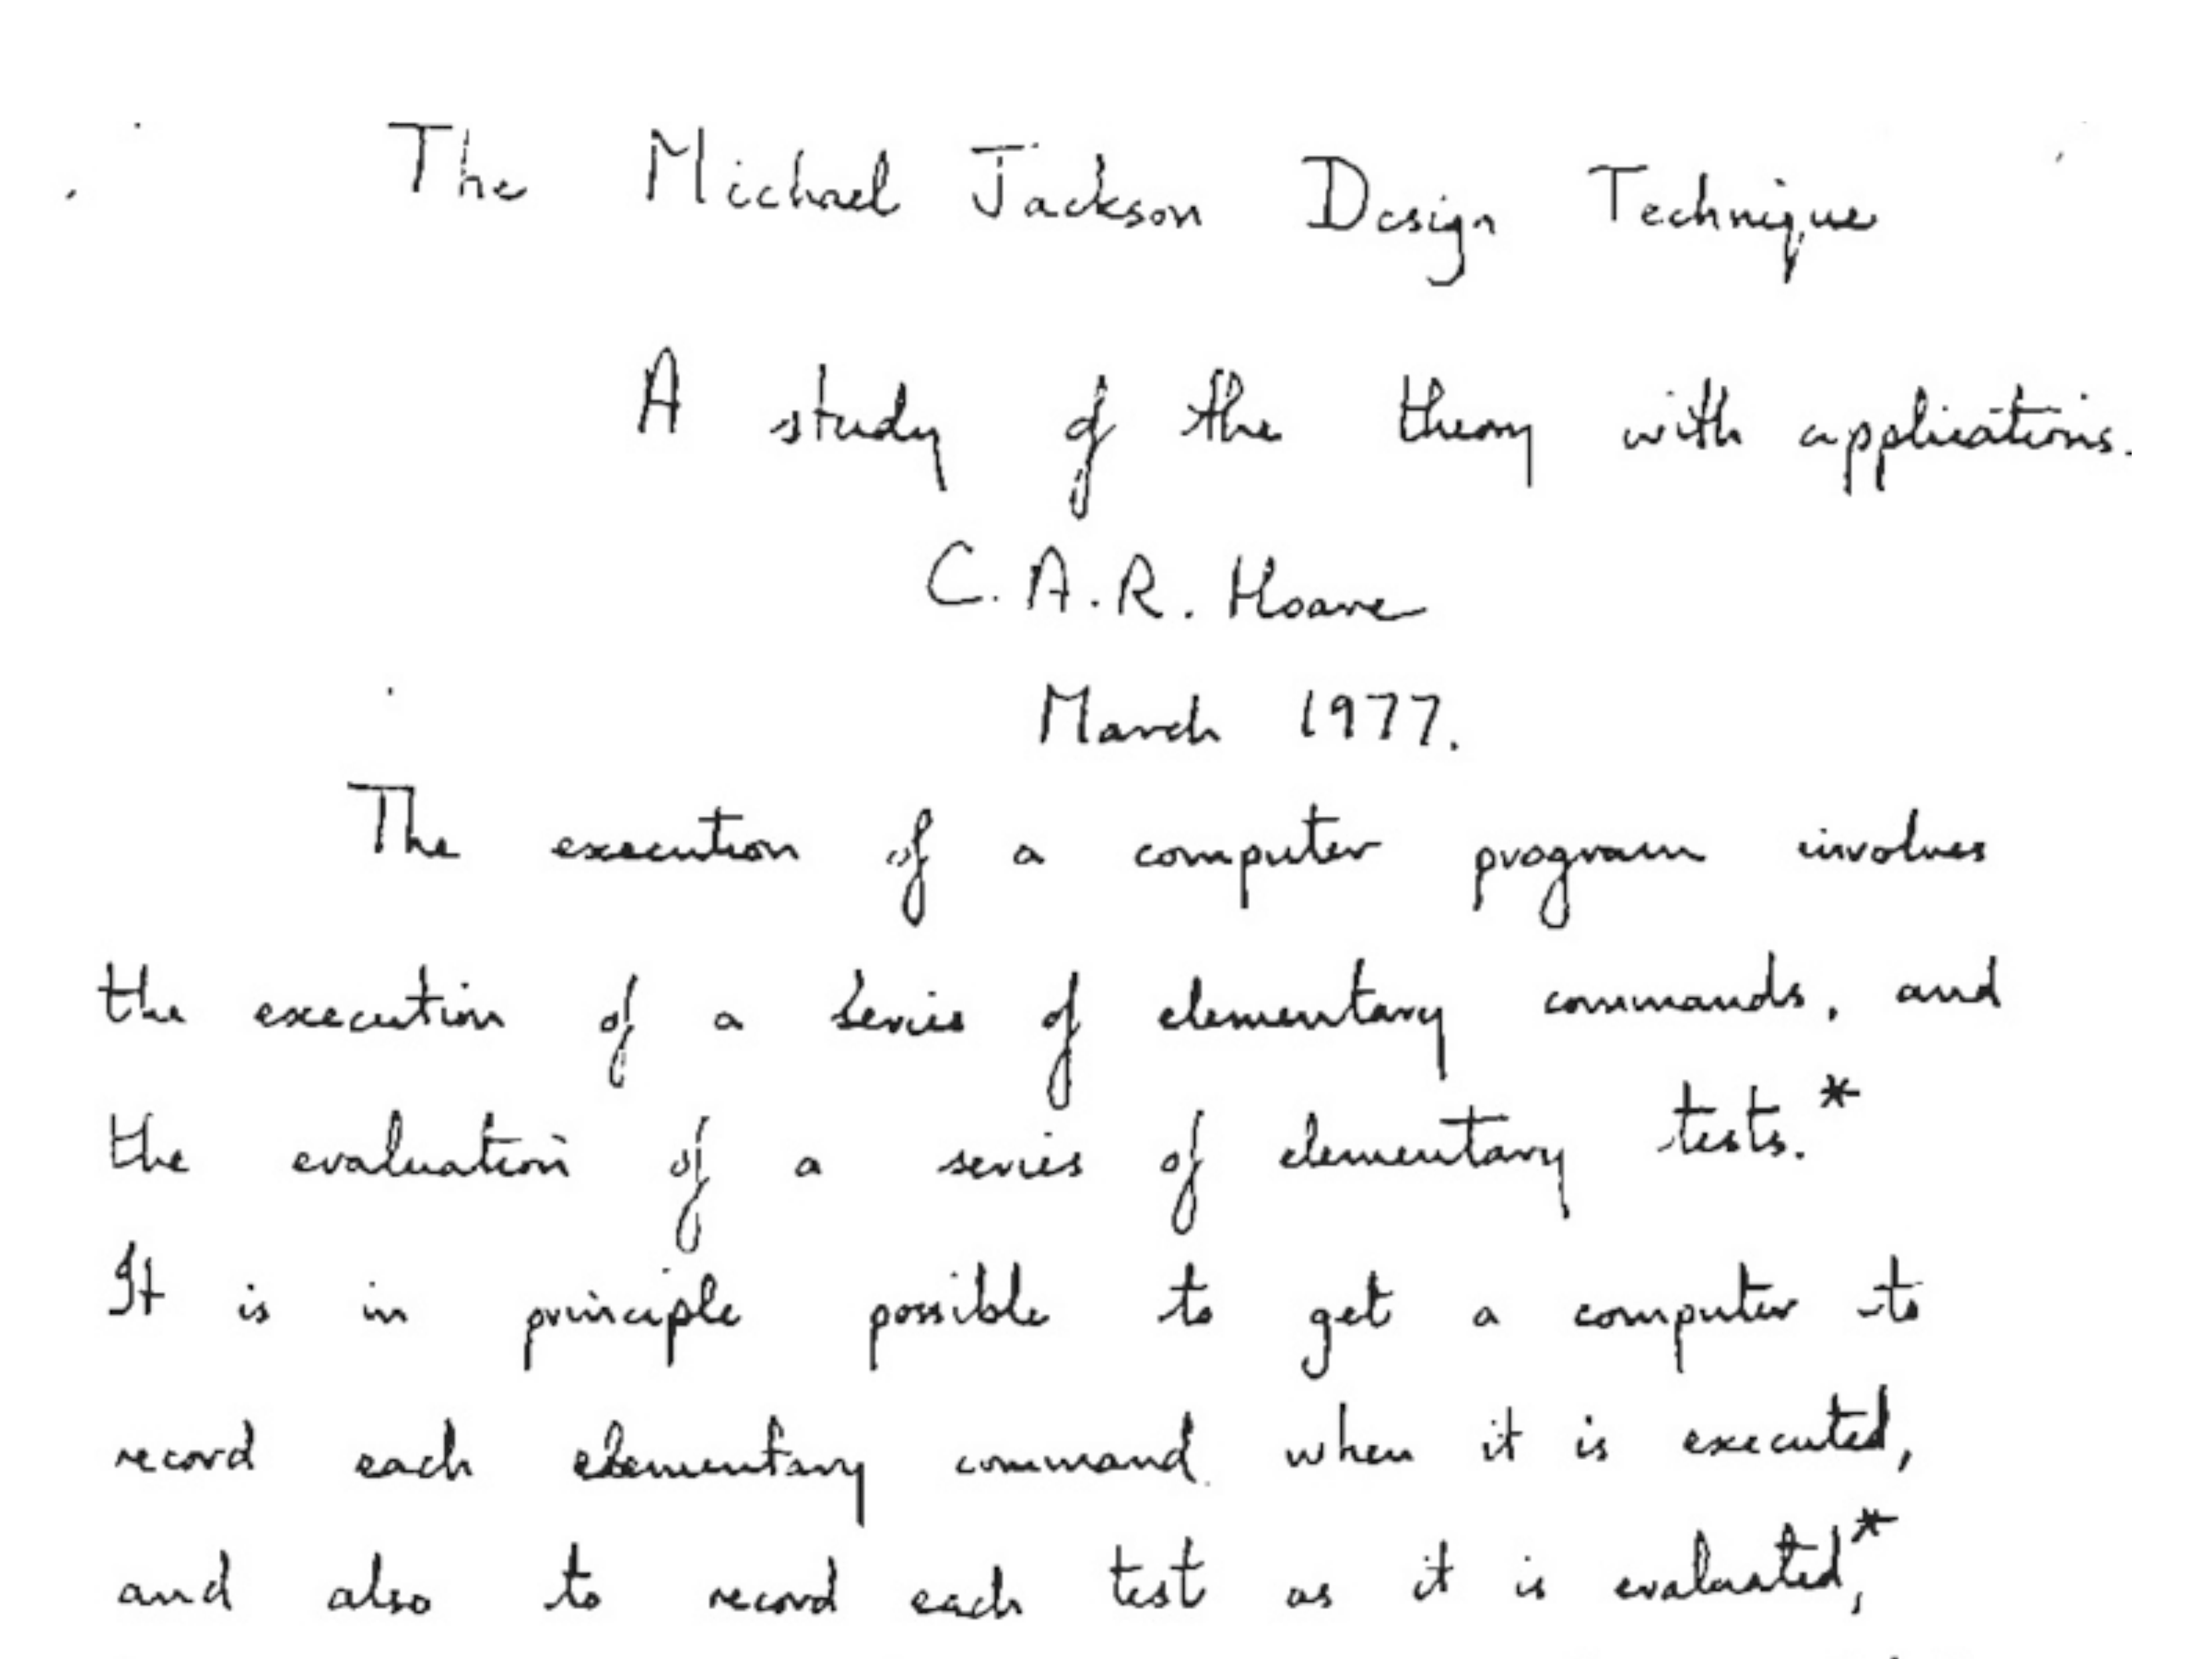 The Michael Jackson Design Technique
A study of the theory with applications.
C.A.R. Hoare
March 1977.
The execution of a computer program involves
the execution of a series of elementary commands, and
the evaluation of a series of elementary tests.*
It is in principle possible to get a computer to
record each elementary command when it is executed,
and also to record each test as it is evaluated,*